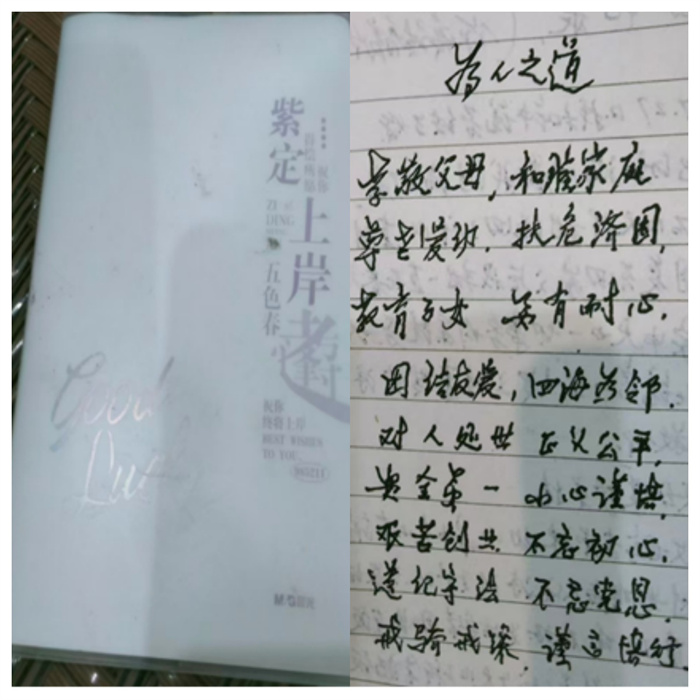 紫定
祝你
上岸
ZI
DING
五色春
Good
Luck
祝你
终将上岸
BEST WISHES
TO YOU
985211
为人之道
孝敬父母，和睦家庭
尊老爱幼，扶危济困，
教育子女 务有耐心，
团结友爱，四海为邻．
对人处世 正义公平，
安全第一 小心谨慎，
艰苦创业 不忘初心，
遵纪守法 不忘党恩，
戒骄戒躁，谨言慎行．